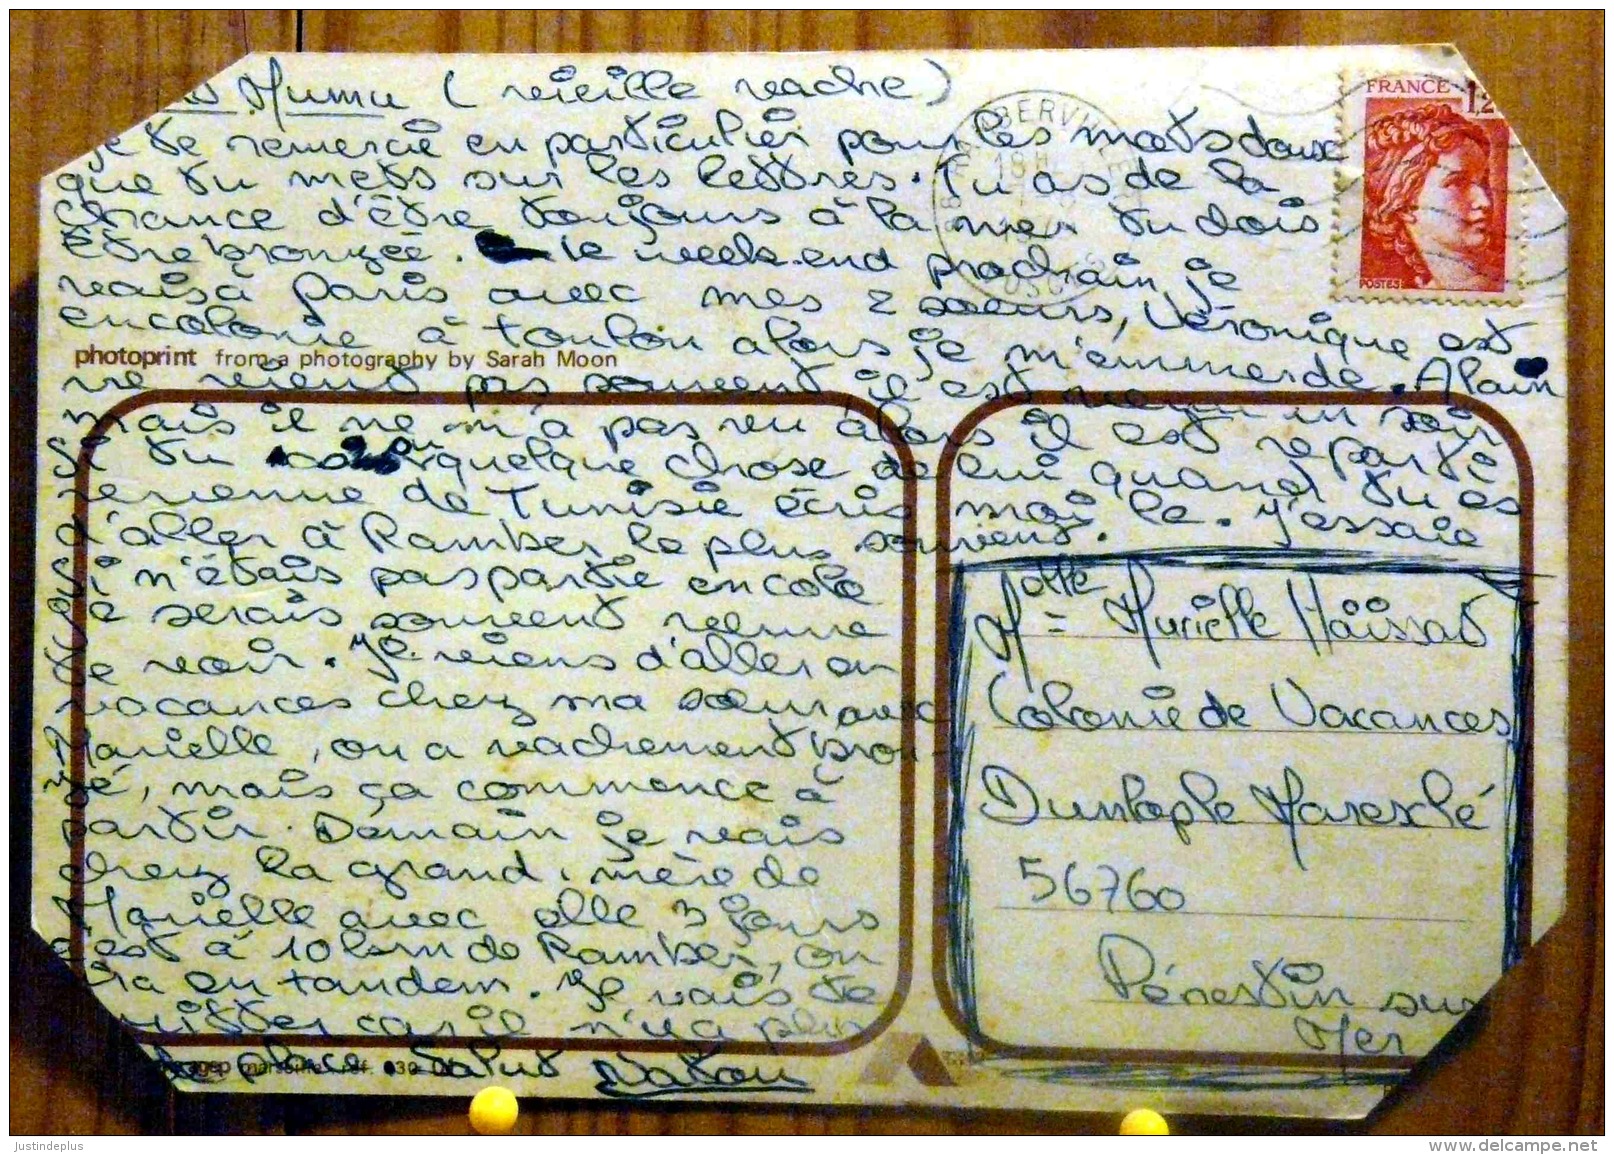 Mumu (vieille vache)
je te remercie en particulier pour les mots doux
que tu mets sur les lettres. Tu as de la
chance d'être toujours à la mer tu dois
être bronzée. le week-end prochain je
vais à Paris avec mes 2 soeurs, Véronique est
en colonie à Toulon alors je m'emmerde. Alain
ne vient pas souvent, il est venu un soir
mais il ne m'a pas vu alors il est reparti
si tu quelque chose de lui quand tu es
revenue de Tunisie écris moi le. J'essaie
d'aller à Ramber le plus souvent.
i n'étais pas partie en colo
e serais souvent venue
te voir. Je viens d'aller en
vacances chez ma soeur avec
Marielle, on a vachement bron-
zé, mais ça commence à
partir. Demain je vais
chez la grand-mère de
Marielle avec elle 3 jours
est à 10 km de Ramber, on
ira en tandem. Je vais te
quitter car il n'y a plus
de place. Salut
photoprint from a photography by Sarah Moon
FRANCE
1,2
POSTES
18 H
Melle Murielle Haïssat
Colonie de Vacances
Dunlop le
56760
Pénestin sur
Mer
marseille réf. 030
justindeplus
www.delcampe.net